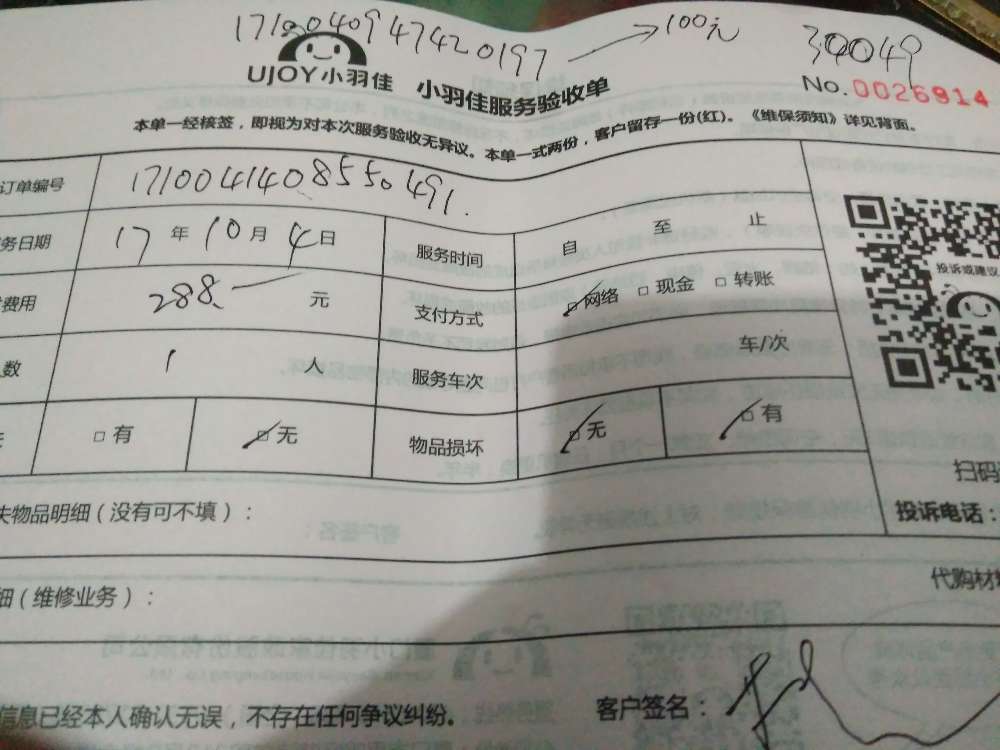 1710040947420197 → 100元 39049
UJOY小羽佳 小羽佳服务验收单 No.0026914
本单一经核签，即视为对本次服务验收无异议。本单一式两份，客户留存一份(红)。《维保须知》详见背面。
订单编号 1710041408550491.
务日期 17年10月4日 服务时间 自 至 止
费用 288 元 支付方式 网络 □ 现金 □ 转账
投诉或建议
人数 1 人 服务车次 车/次
□ 有 □ 无 物品损坏 □ 无 □ 有
扫码
失物品明细（没有可不填）：
投诉电话：
细（维修业务）：
代购材
信息已经本人确认无误，不存在任何争议纠纷。 客户签名：